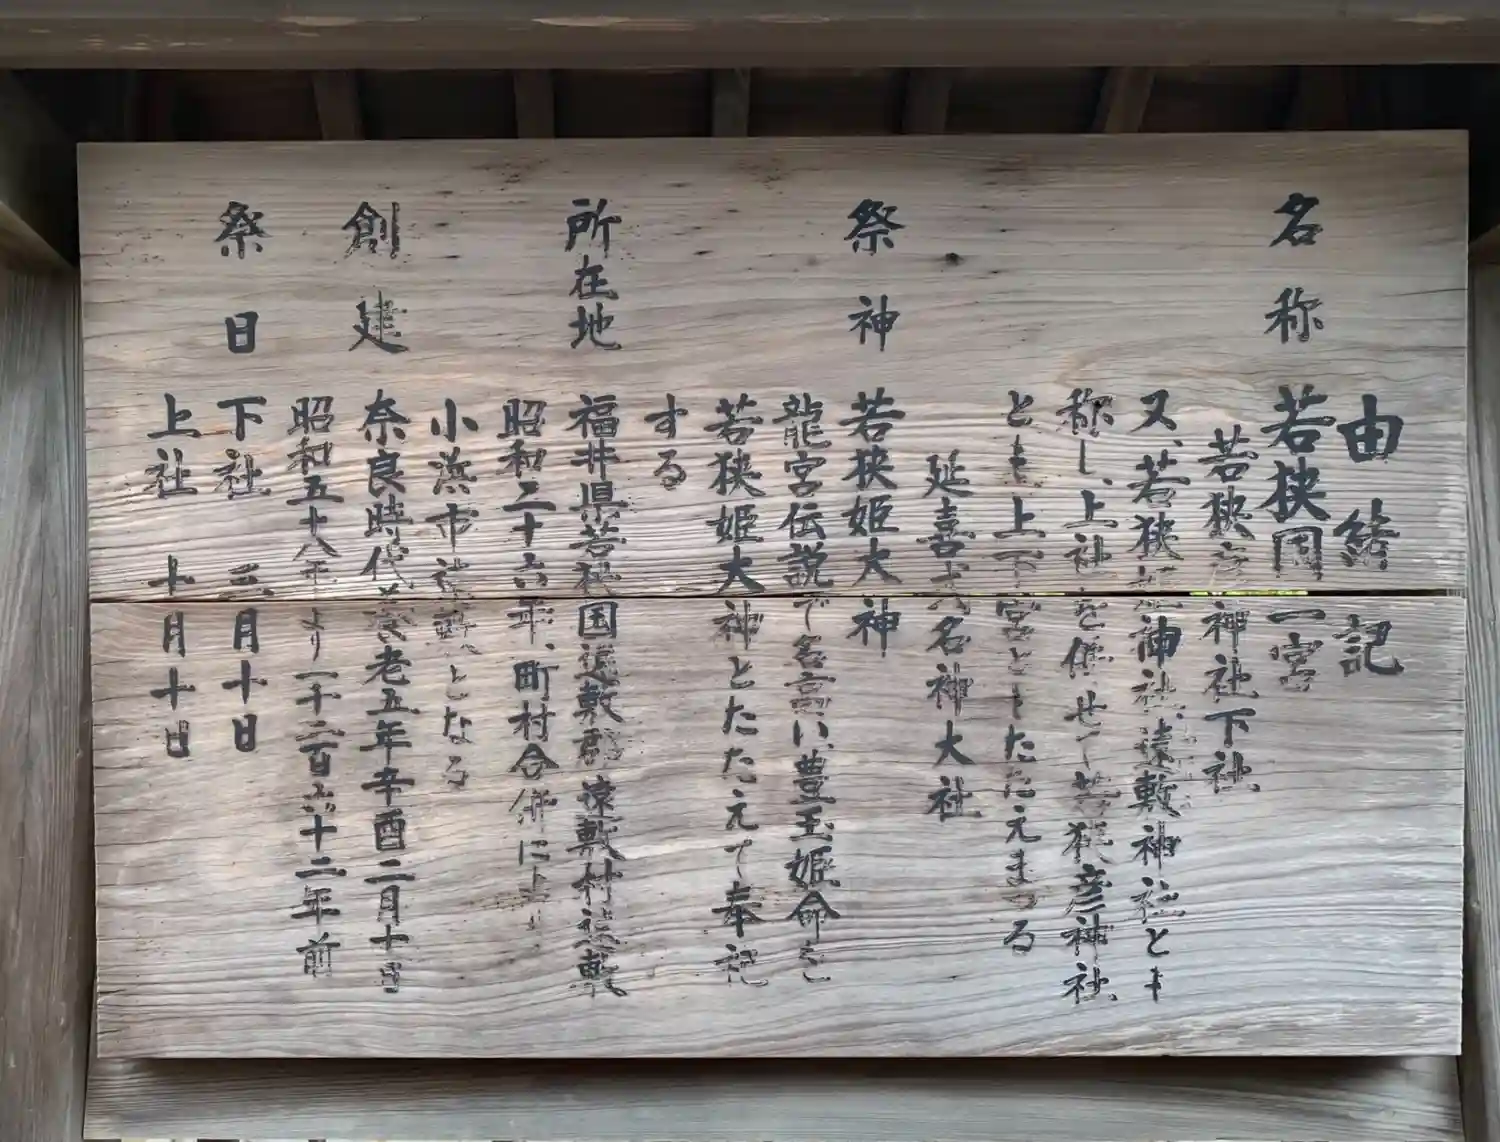 由緒記
名称 若狭国一宮
若狭彦神社下社
又、若狭姫神社、遠敷神社とも
称し、上社を併せて若狭彦神社
とも上下宮ともたたえまつる
延喜式名神大社
祭神 若狭姫大神
龍宮伝説で名高い、豊玉姫命を
若狭姫大神とたたえて奉祀
する
所在地 福井県若狭国遠敷郡遠敷村遠敷
昭和二十六年、町村合併により、
小浜市遠敷となる
創建 奈良時代養老五年辛酉二月十日
昭和五十八年より一千二百六十二年前
祭日 下社 三月十日
上社 十月十日